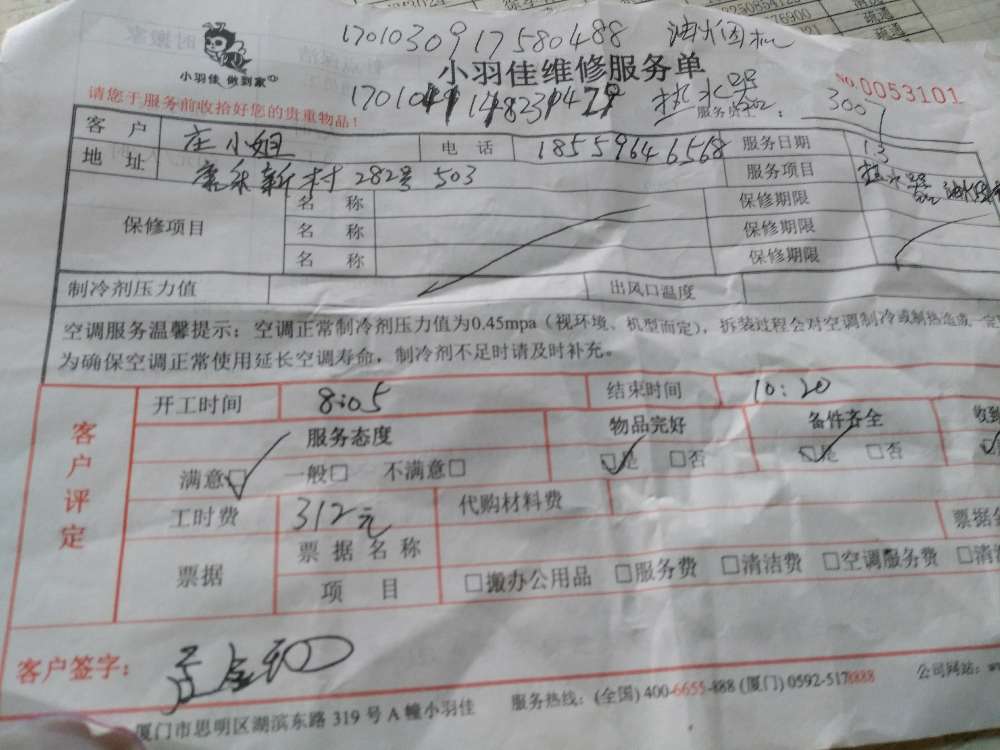 1701030917580488 油烟机
小羽佳 做到家
小羽佳维修服务单
请您于服务前收拾好您的贵重物品!
热水器
No.0053101
服务员工: 3007
客户 庄小姐 电话 18559646568 服务日期 13
地址 康乐新村282号503 服务项目 热水器 油烟机
保修项目 名称 保修期限
名称 保修期限
名称 保修期限
制冷剂压力值 出风口温度
空调服务温馨提示:空调正常制冷剂压力值为0.45mpa(视环境、机型而定),拆装过程会对空调制冷或制热造成一定
为确保空调正常使用延长空调寿命,制冷剂不足时请及时补充。
客户评定
开工时间 8:05 结束时间 10:20
服务态度 物品完好 备件齐全 收到
满意□ 一般□ 不满意□ □是 □否 □是 □否
工时费 312元 代购材料费
票据 票据名称 票据
项目 □搬办公用品 □服务费 □清洁费 □空调服务费 □清
客户签字:
厦门市思明区湖滨东路 319 号 A 幢小羽佳 服务热线:(全国) 400-6655-888 (厦门) 0592-5178888 公司网站: